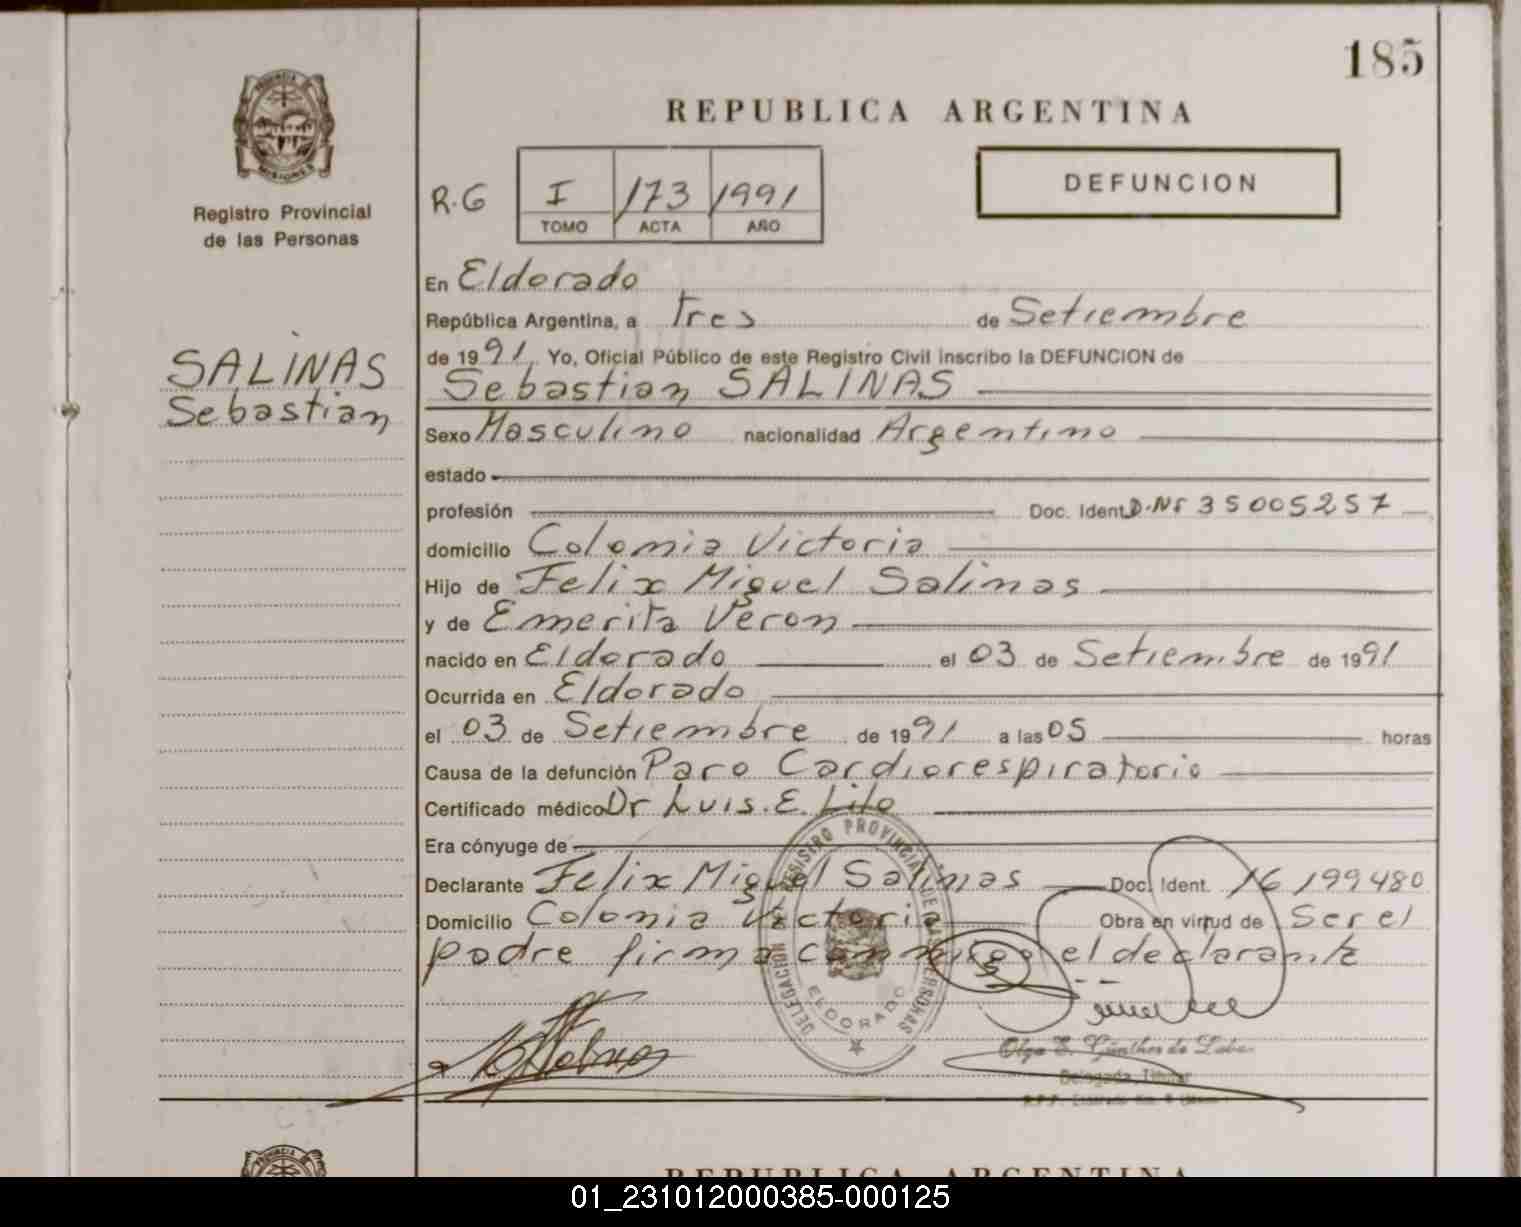 185
REPUBLICA ARGENTINA
DEFUNCION
R.G I 173 1991
TOMO ACTA AÑO
PROVINCIA DE
MISIONES
Registro Provincial
de las Personas
SALINAS
Sebastian
En Eldorado
República Argentina, a Tres de Setiembre
de 1991 Yo, Oficial Público de este Registro Civil inscribo la DEFUNCION de
Sebastian SALINAS
Sexo Masculino nacionalidad Argentino
estado
profesión Doc. Ident. D.Nº 35005257
domicilio Colonia Victoria
Hijo de Felix Miguel Salinas
y de Emerita Veron
nacido en Eldorado el 03 de Setiembre de 1991
Ocurrida en Eldorado
el 03 de Setiembre de 1991 a las 05 horas
Causa de la defunción Paro Cardiorespiratorio
Certificado médico Dr Luis. E. Lilo
Era cónyuge de
Declarante Felix Miguel Salinas Doc. Ident. 16199480
Domicilio Colonia Victoria Obra en virtud de Ser el
padre firma conmigo el declarante
DELEGACION DEL REGISTRO PROVINCIAL DE LAS PERSONAS
ELDORADO
Olga E. Günther de
Delegada Titular
REPUBLICA ARGENTINA
01_231012000385-000125